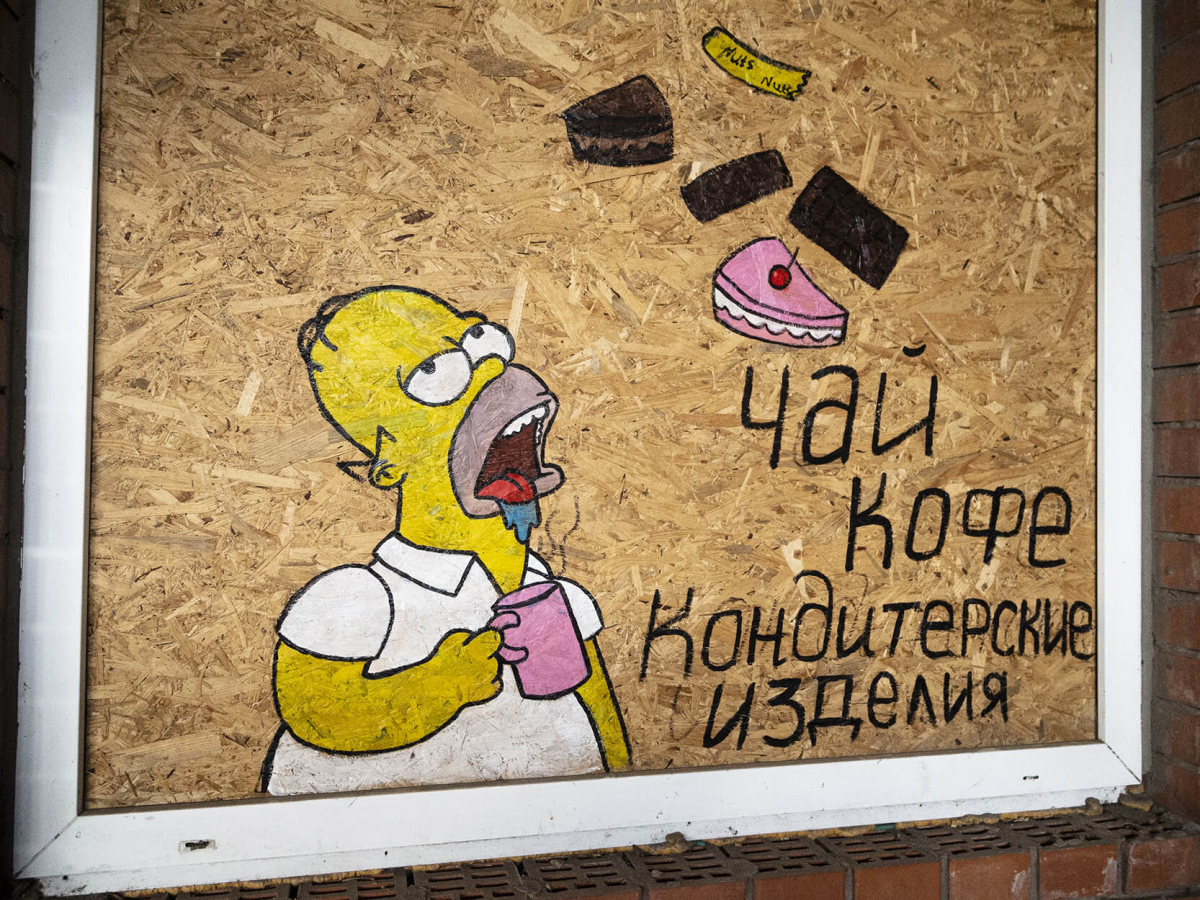 Nuts Nuts
Чай
Кофе
Кондитерские
изделия